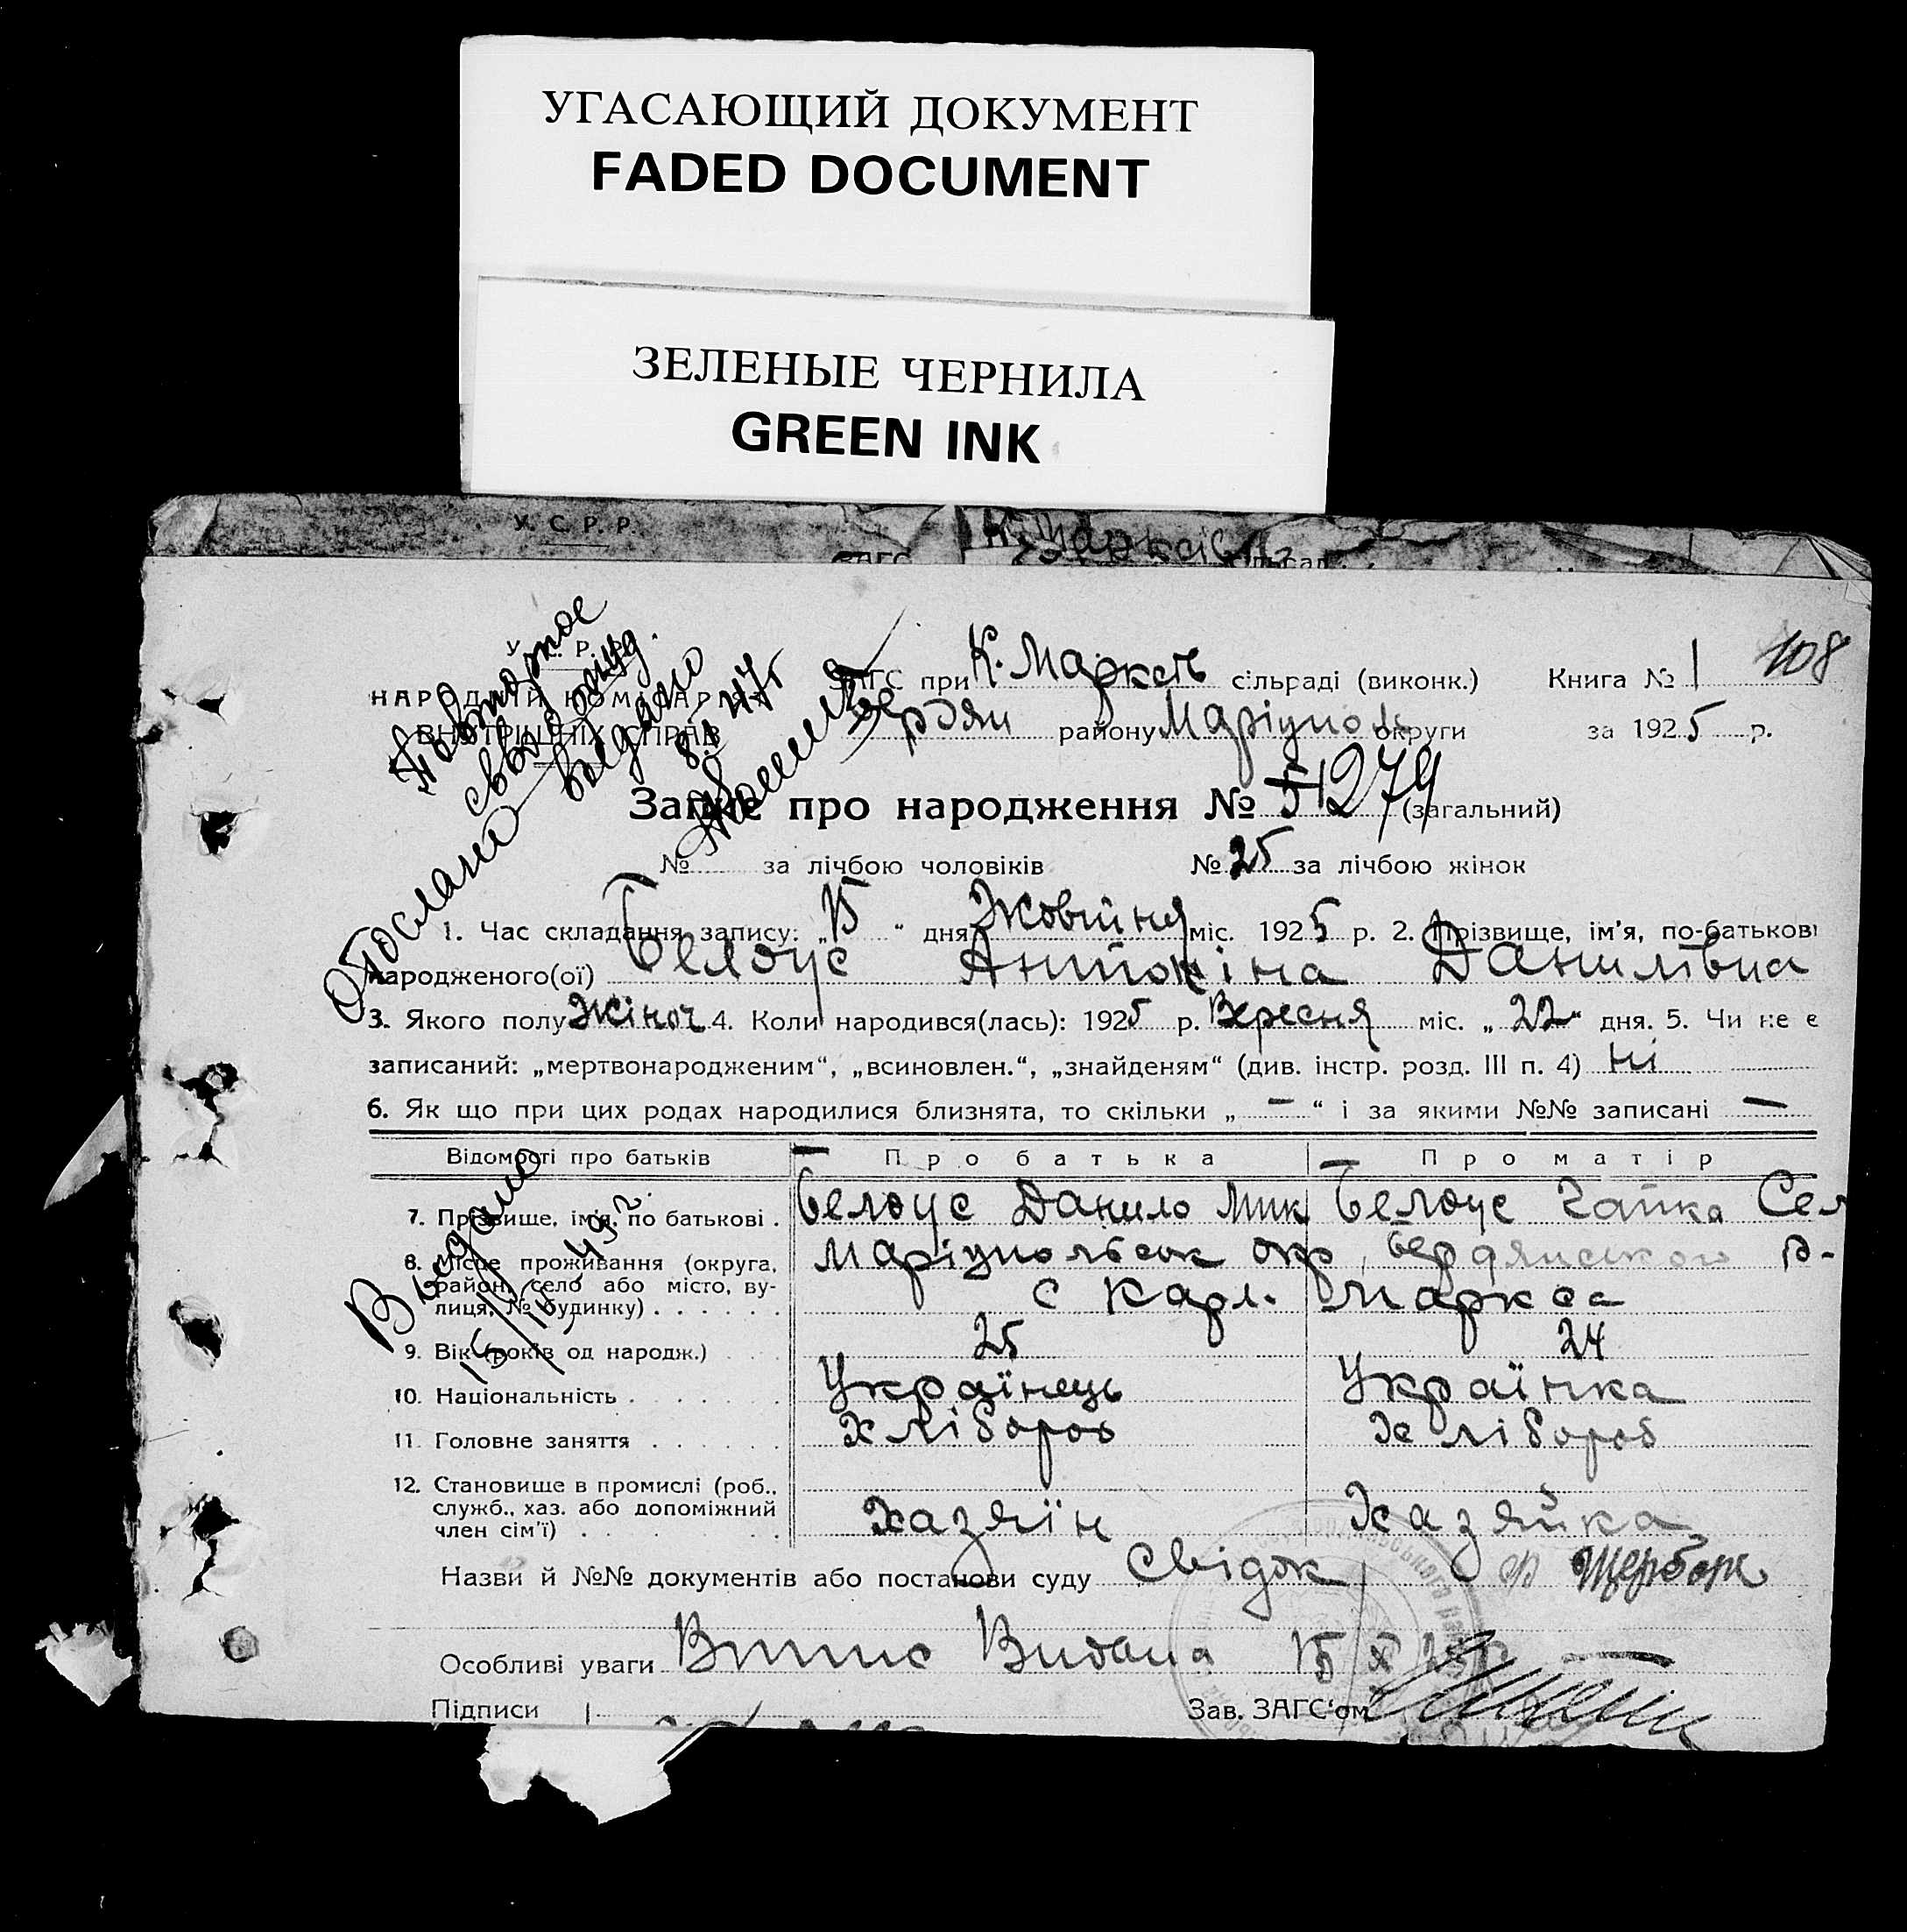 УГАСАЮЩИЙ ДОКУМЕНТ
FADED DOCUMENT
ЗЕЛЕНЫЕ ЧЕРНИЛА
GREEN INK
У. С. Р. Р.
ЗАГС
У. С. Р. Р.
НАРОДНІЙ КОМІСАРІЯТ
ВНУТРІШНІХ СПРАВ
Повторное
свид
Отослано
выдано
ЗАГС при К. Маркси сільраді (виконк.) Книга № 1 108
Бердян району Маріуполь округи за 1925 р.
Запис про народження № 51 279 (загальний)
№ за лічбою чоловіків № 25 за лічбою жінок
1. Час складання запису: „15“ дня Жовтня міс. 1925 р. 2. Прізвище, ім'я, по-батькові
народженого(ої) Белоус Антоніна Данилівна
3. Якого полу Жіноч 4. Коли народився(лась): 1925 р. Вересня міс. „22“ дня. 5. Чи не є
записаний: „мертвонародженим“, „всиновлен.“, „знайденям“ (див. інстр. розд. III п. 4) ні
6. Як що при цих родах народилися близнята, то скільки „ — “ і за якими №№ записані —
Відомості про батьків Про батька Про матір
7. Прізвище, ім'я, по батькові . Белоус Данило Мик Белоус Гапка Сем
8. Місце проживання (округа, Маріупольськ окр, Бердянського р-
район, село або місто, ву- с Карл. Маркса
лиця, № будинку) . . . . . .
Выдано
9. Вік (років од народж.) 25 24
10. Національність . . . . . Українець Українка
11. Головне заняття . . . . . . Хлібороб Хлібороб
12. Становище в промислі (роб.,
служб., хаз. або допоміжний Хазяїн Хазяйка
член сім'ї) . . . . . .
Назви й №№ документів або постанови суду Свідок Ф Щербак
Особливі уваги Випис Видана 15/X 25р
Підписи Зав. ЗАГС'ом